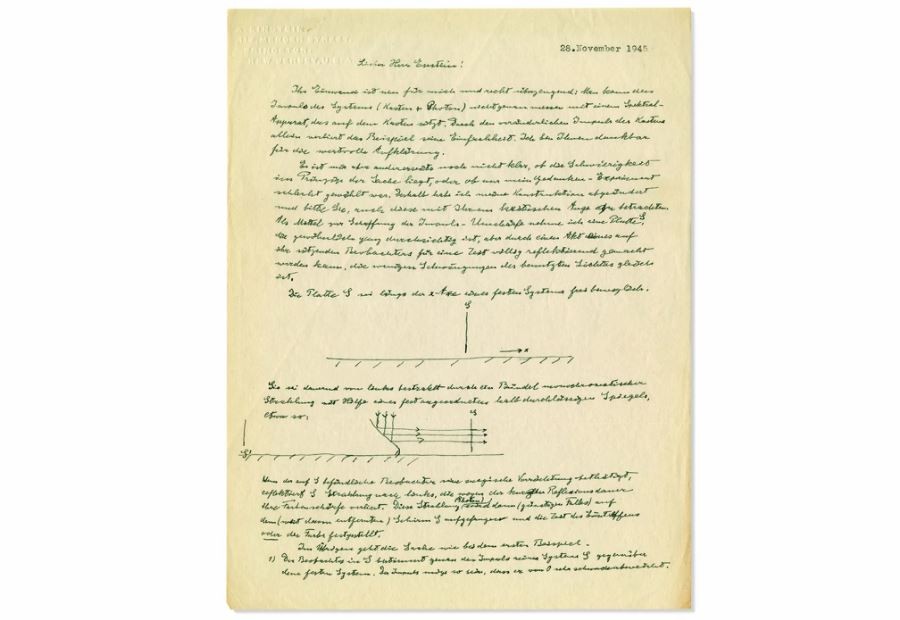 A. EINSTEIN
112 MERCER STREET
PRINCETON
NEW JERSEY, U.S.A.
28.November 1945
Lieber Herr Epstein!
Ihr Einwand ist nun für mich und recht überzeugend: Man kann den
Impuls des Systems (Kasten + Photon) nicht genau messen mit einem Spektral-
Apparat, das auf dem Kasten sitzt. Durch den veränderlichen Impuls des Kastens
allein verliert das Beispiel seine Einfachheit. Ich bin Ihnen dankbar
für die wertvolle Aufklärung.
Es ist mir aber andererseits noch nicht klar, ob die Schwierigkeit
im Prinzip der Sache liegt, oder ob nur mein Gedanken-Experiment
schlecht gewählt war. Deshalb habe ich meine Konstruktion abgeändert
und bitte Sie, auch diese mit Ihrem kritischen Auge zu betrachten.
Als Mittel zur Schaffung der Impuls-Unschärfe nehme ich eine Platte S,
die gewöhnlich ganz durchsichtig ist, aber durch einen Akt eines auf
ihr sitzenden Beobachters für eine Zeit völlig reflektierend gemacht
werden kann, die wenigen Schwingungen des benutzten Lichtes gleich
ist.
Die Platte S sei längs der x-Axe eines festen Systems frei beweglich.
S
x
Sie sei dauernd von links bestrahlt durch ein Bündel monochromatischer
Strahlung mit Hilfe eines fest angeordneten halb durchlässigen Spiegels,
etwa so:
S
S'
Wenn der auf S befindliche Beobachter eine magische Vorrichtung bethätigt,
reflektiert S Strahlung nach links, die wegen der kurzen Reflexionsdauer
ihre Farbenschärfe verliert. Diese Strahlung (Photon) wird dann (günstigen Falles) auf
dem (weit davon entfernten) Schirm S' aufgefangen und die Zeit des Eintreffens
oder die Farbe festgestellt.
Im Übrigen geht die Sache wie bei dem ersten Beispiel.
1) Der Beobachter in S bestimmt genau den Impuls seines Systems S gegenüber
dem festen System. Der Impuls möge so sein, dass er von 0 sehr schwach abweicht.